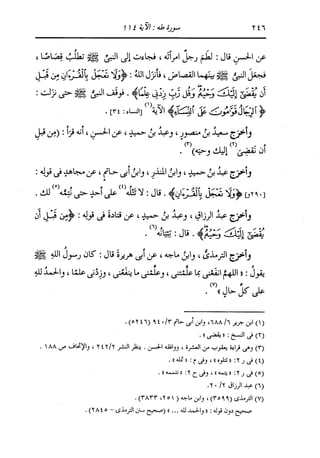 ٢٤٦ سورة طه : الآية ١١٤
عن الحسن قال : لطم رجل امرأته ، فجاءت إلى النبي ﷺ تطلب قصاصا ،
فجعل النبي ﷺ بينهما القصاص ، فأنزل الله : ﴿ولا تعجل بالقرءان من قبل
أن يقضى إليك وحيه وقل رب زدنى علما﴾ . فوقف النبي ﷺ حتى نزلت :
﴿الرجال قوامون على النساء﴾ الآية(١) [النساء : ٣٤] .
وأخرج سعيد بن منصور ، وعبد بن حميد ، عن الحسن ، أنه قرأ : (من قبل
أن نقضى(٢) إليك وحيه)(٣) .
وأخرج عبد بن حميد ، وابن المنذر ، وابن أبي حاتم ، عن مجاهد في قوله :
[٢٩٠و] ﴿ولا تعجل بالقرءان﴾ . قال : لا تتله(٤) على أحد حتى نتمه(٥) لك .
وأخرج عبد الرزاق ، وعبد بن حميد ، عن قتادة في قوله : ﴿من قبل أن
يقضى إليك وحيه﴾ . قال : تبيانه(٦) .
وأخرج الترمذي ، وابن ماجه ، عن أبي هريرة قال : كان رسول الله ﷺ
يقول : «اللهم انفعني بما علمتني ، وعلمني ما ينفعني ، وزدني علما ، والحمد لله
على كل حال»(٧) .
(١) ابن جرير ٦/ ٦٨٨، وابن أبي حاتم ٣/ ٩٤٠ (٥٢٤٦) .
(٢) في النسخ : «يقضى» .
(٣) وهي قراءة يعقوب من العشرة ، ووافقه الحسن . ينظر النشر ٢/ ٢٤٢ ، والإتحاف ص ١٨٨ .
(٤) في ر ٢: «تتلوه» ، وفي م : «تمله» .
(٥) في ر ٢: «يتمه» ، وفي ح ٢: «تتممه» .
(٦) عبد الرزاق ٢/ ٢٠.
(٧) الترمذي (٣٥٩٩) ، وابن ماجه (٢٥١، ٣٨٣٣) .
صحيح دون قوله : «والحمد لله ...» (صحيح سنن الترمذي - ٢٨٤٥) .